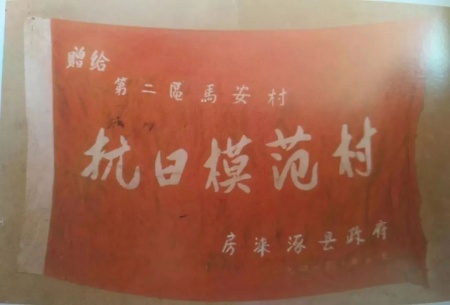 赠给
第二區馬安村
抗日模范村
房涞涿县政府